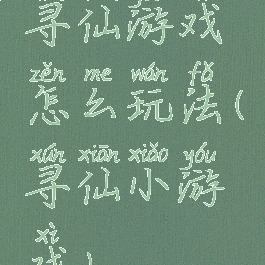 寻仙游戏
zěn me wán fǎ
怎么玩法(
xún xiān xiǎo yóu
寻仙小游
xì
戏)